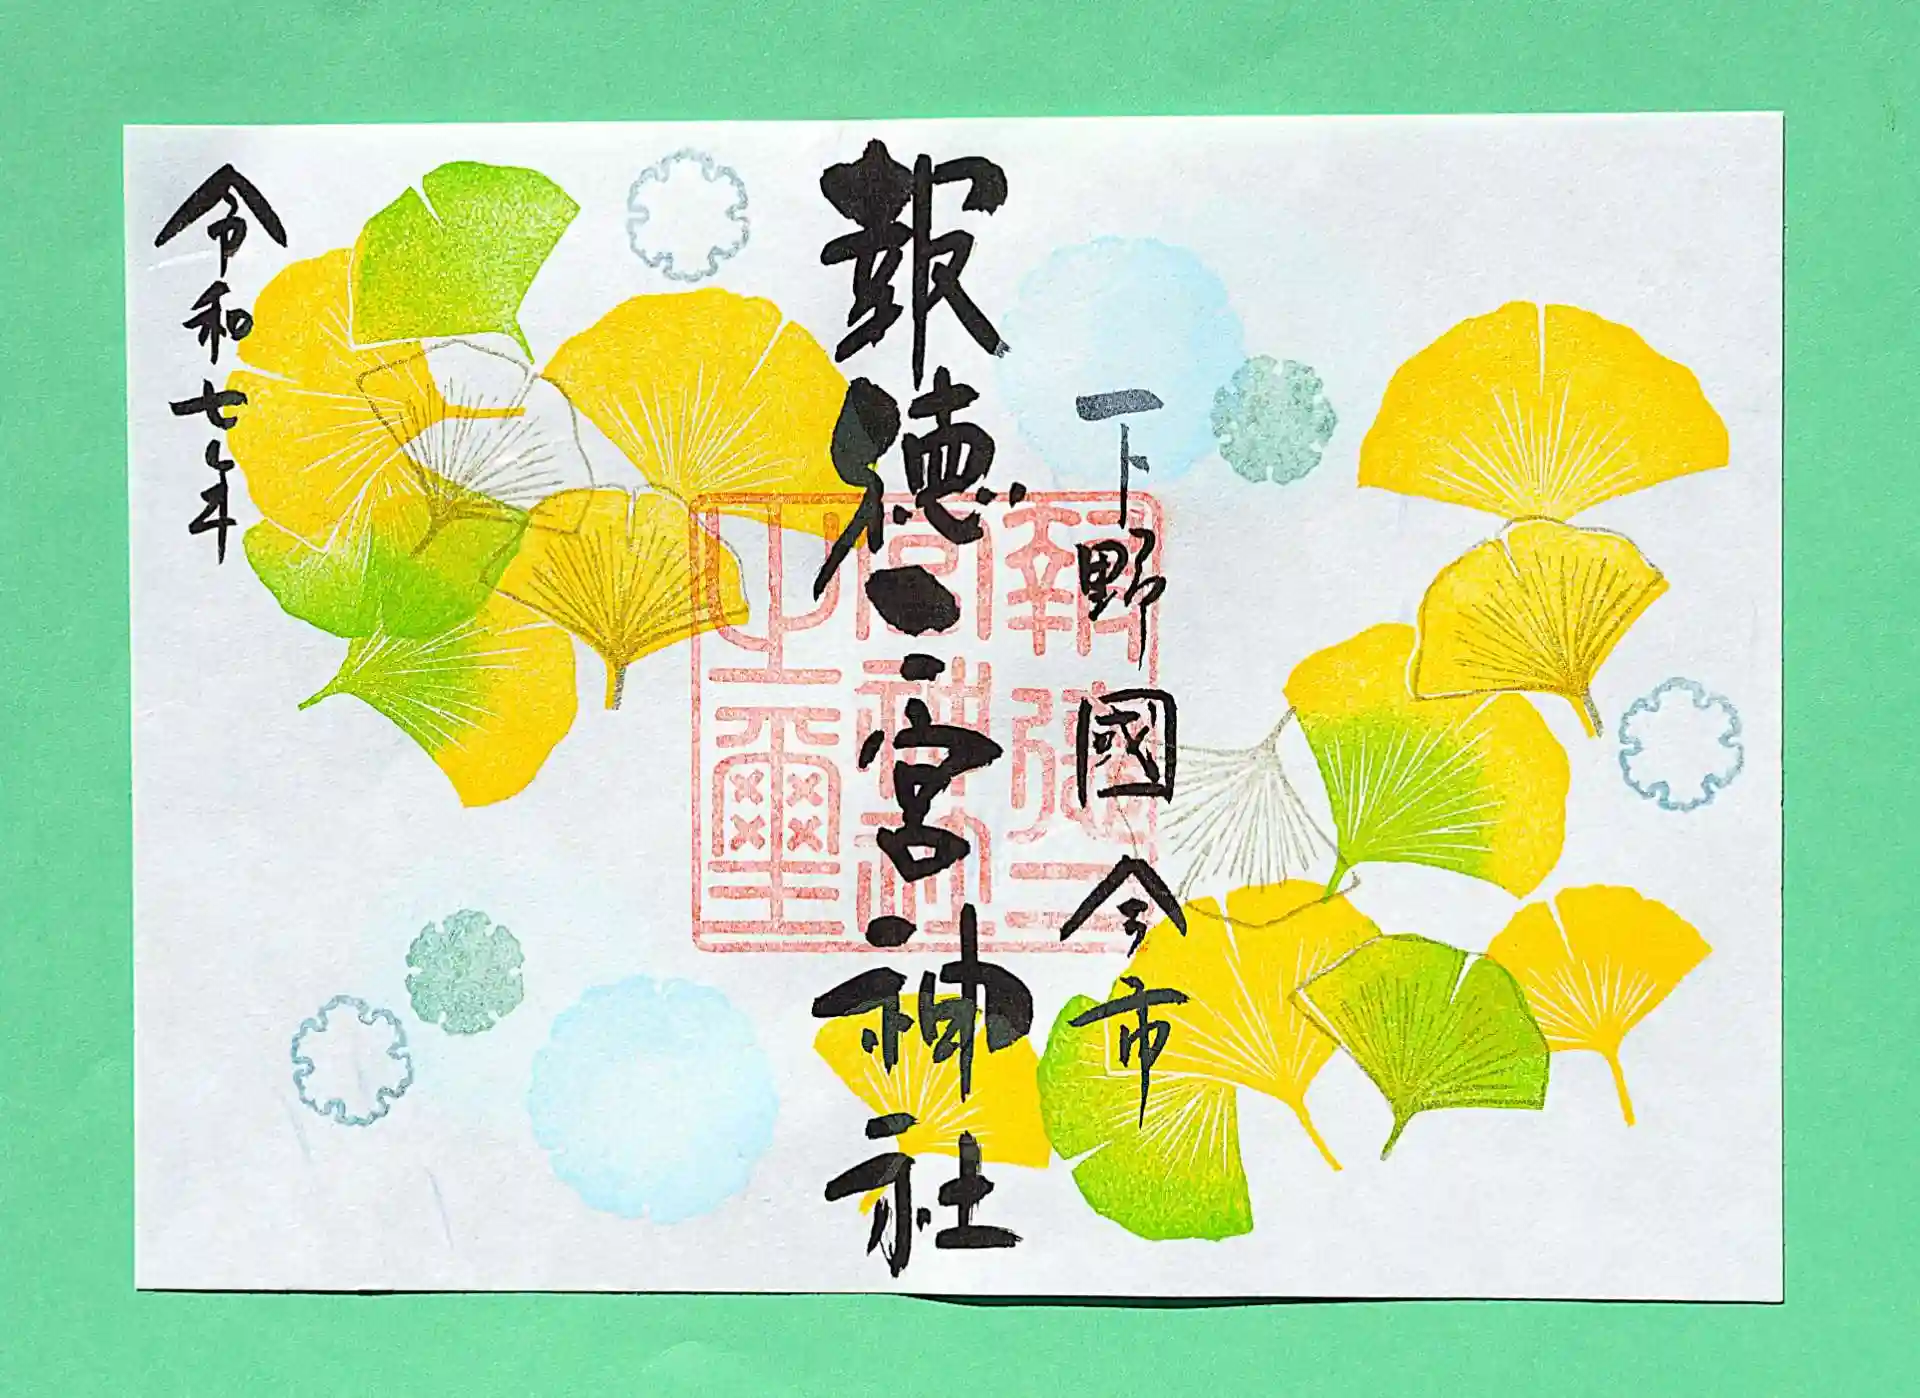 下野國今市
報徳二宮神社
報徳二
宮神社
之璽
令和七年